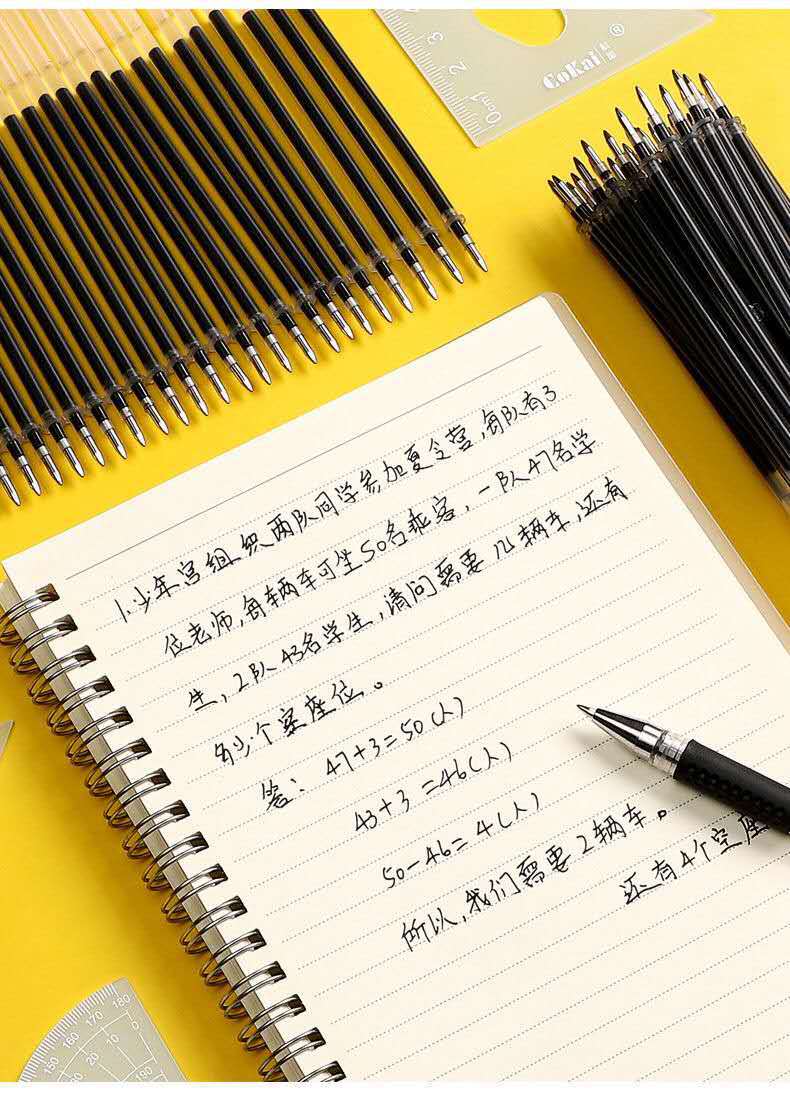 3
2
0cm1
CoKai
®
1.少年宫组织两队同学参加夏令营,每队有3
位老师,每辆车可坐50名乘客,一队47名学
生,2队43名学生,请问需要几辆车,还有
多少个空座位。
答: 47+3=50(人)
43+3=46(人)
50-46=4(人)
所以,我们需要2辆车。
还有4个空座
180
170
160
150
0
10
20
180
190